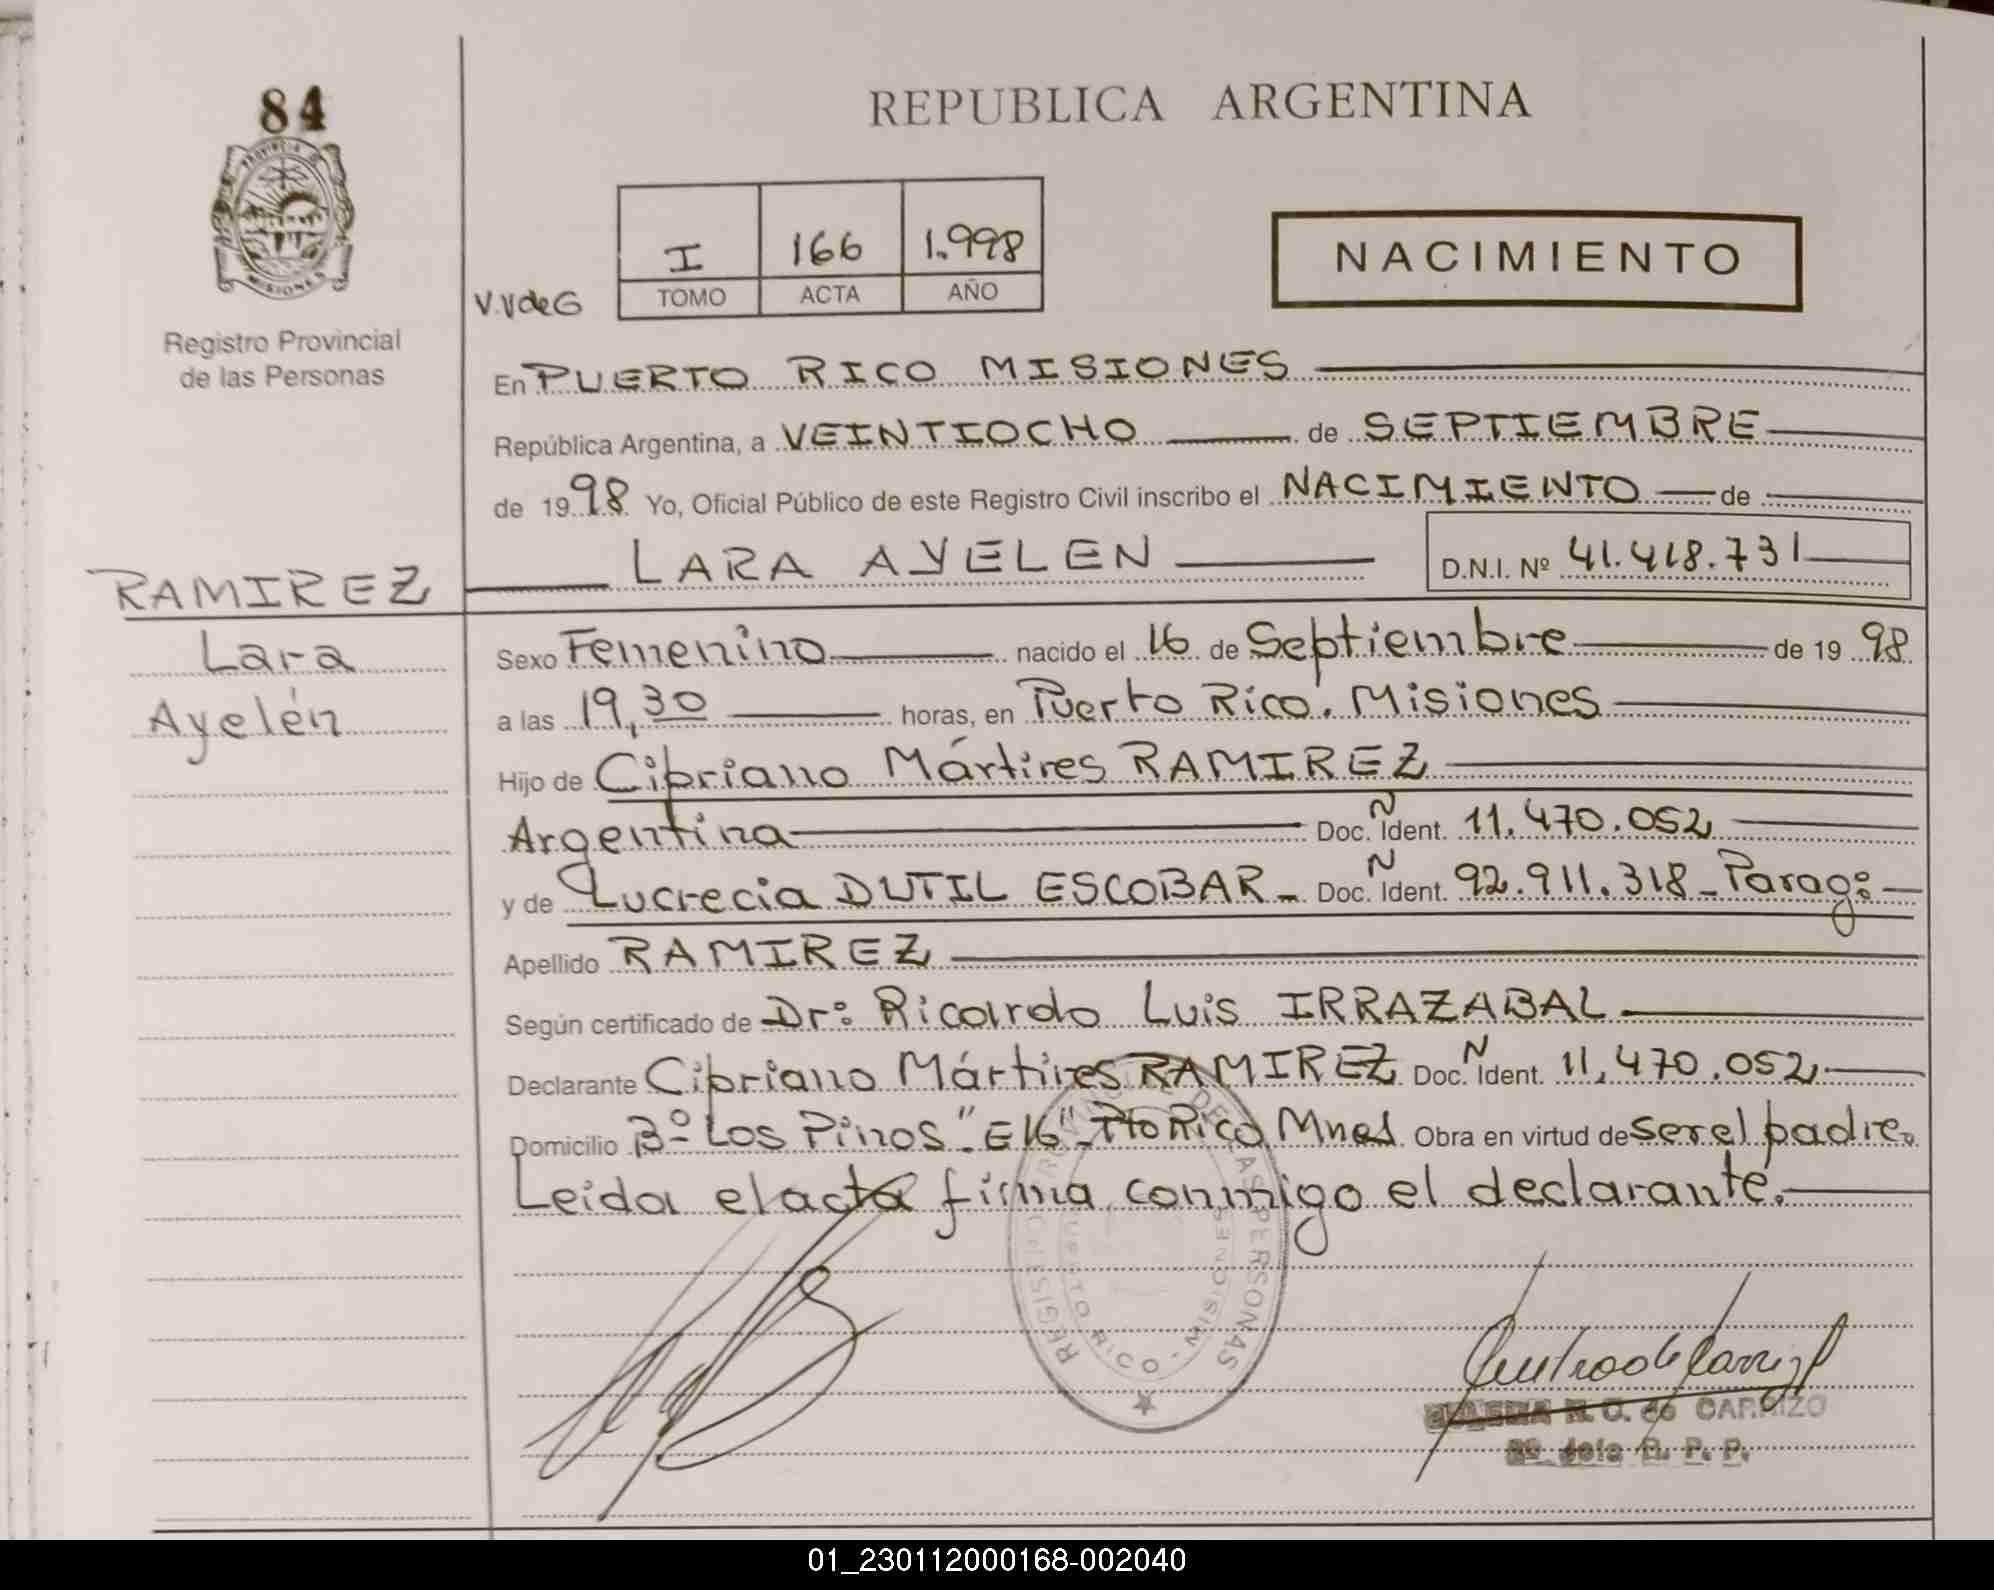 84
PROVINCIA DE
MISIONES
Registro Provincial
de las Personas
REPUBLICA ARGENTINA
I 166 1.998
TOMO ACTA AÑO
V.VdeG
NACIMIENTO
En PUERTO RICO MISIONES
República Argentina, a VEINTIOCHO de SEPTIEMBRE
de 1998 Yo, Oficial Público de este Registro Civil inscribo el NACIMIENTO de
LARA AYELEN D.N.I. Nº 41.418.731
RAMIREZ
Lara
Ayelén
Sexo Femenino nacido el 16 de Septiembre de 1998
a las 19,30 horas, en Puerto Rico. Misiones
Hijo de Cipriano Mártires RAMIREZ
Argentina Doc. Ident. N 11.470.052
y de Lucrecia DUTIL ESCOBAR Doc. Ident. N 92.911.318 - Parag:
Apellido RAMIREZ
Según certificado de Dr: Ricardo Luis IRRAZABAL
Declarante Cipriano Mártires RAMIREZ Doc. Ident. N 11.470.052
Domicilio Bº Los Pinos "E16" Pto Rico Mnes Obra en virtud de ser el padre.
Leida el acta firma conmigo el declarante.
REGISTRO PROVINCIAL DE LAS PERSONAS
PUERTO RICO - MISIONES
N. C. de CARRIZO
2º Jefe R. P. P.
01_230112000168-002040